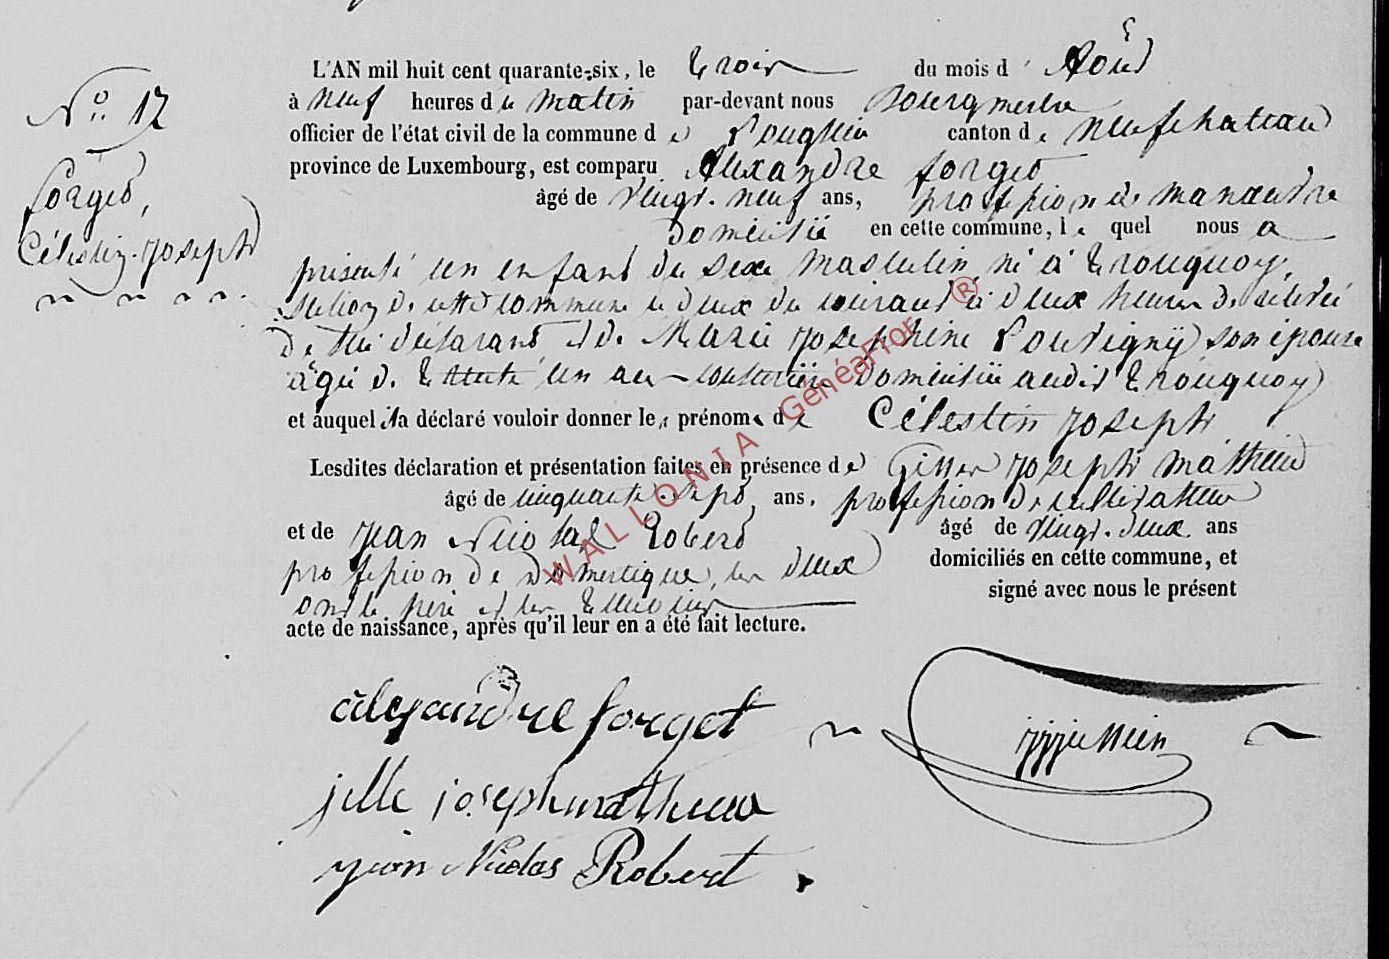 N° 17
forget,
Célestin-joseph
L'AN mil huit cent quarante-six, le trois du mois d' Août
à neuf heures du matin par-devant nous Bourgmestre
officier de l'état civil de la commune de canton de neufchateau
province de Luxembourg, est comparu Alexandre forget
âgé de vingt-neuf ans, profession de manœuvre
domicilié en cette commune, le quel nous a
présenté un enfant du sexe masculin né à trouquoy,
section de cette commune le deux du courant à deux heures de relevée
de lui déclarant et de Marie josephine Pouvigny son épouse
âgée de trente un an couturière domiciliée audit trouquoy
et auquel il a déclaré vouloir donner les prénoms de Célestin joseph
Lesdites déclaration et présentation faites en présence de joseph mathieu
âgé de cinquante-sept ans, profession de cultivateur
et de jean Nicolas Robert âgé de vingt-deux ans
profession de domestique, les deux domiciliés en cette commune, et
ont le père et les témoins signé avec nous le présent
acte de naissance, après qu'il leur en a été fait lecture.
alexandre forget
jille joseph mathieu
jean Nicolas Robert
WALLONIA GénéaFfor ®